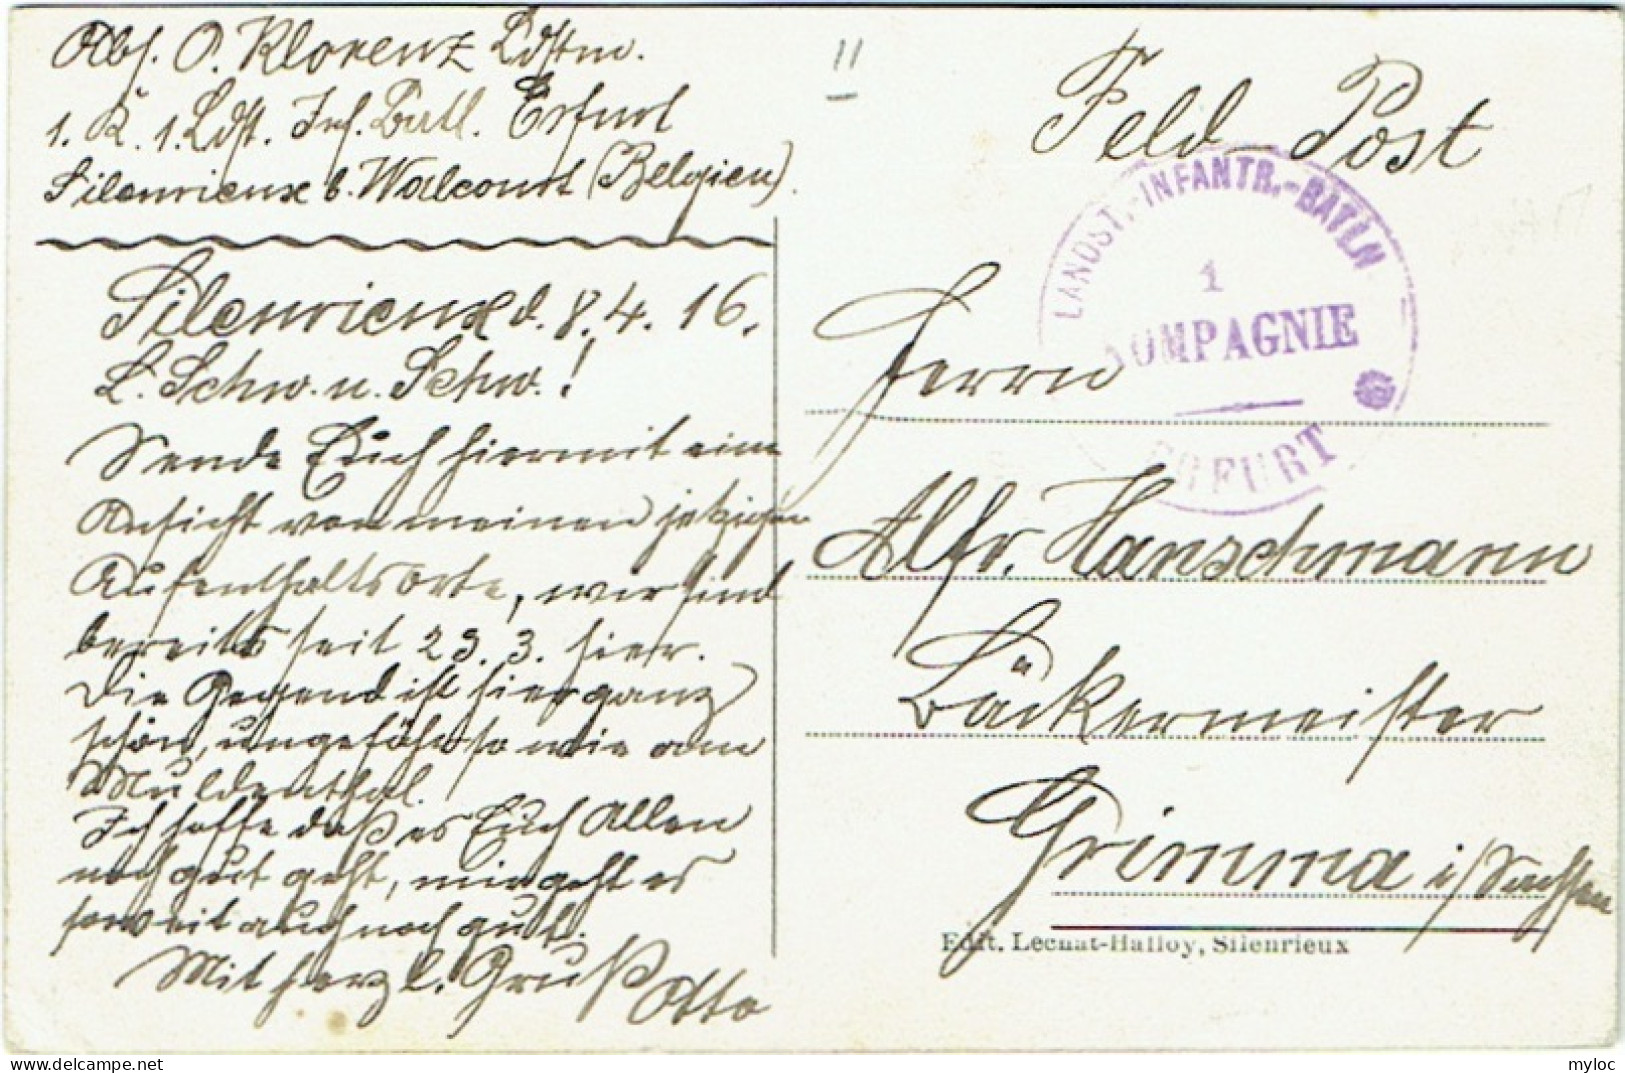 Abs. O. Klorenz Ldstm.
1. K. 1. Ldst. Inf. Batl. Erfurt
Silenrieux b. Walcourt (Belgien).
Silenrieux d. 8. 4. 16.
L. Schw. u. Schw.!
Sende Euch hiermit eine
Ansicht von meinen jetzigen
Aufenthaltsorte, wir sind
bereits seit 23. 3. hier.
Die Gegend ist hier ganz
schön, ungefähr so wie am
Muldenthal.
Ich hoffe daß es Euch Allen
noch gut geht, mir geht es
soweit auch noch gut.
Mit herzl. Gruß Otto
11
Feld-Post
LANDST.-INFANTR.-BATLN
1
KOMPAGNIE
ERFURT
Herrn
Alfr. Hanschmann
Bäckermeister
Grimma i/Sachsen
Edit. Lecuat-Halloy, Silenrieux
myloc